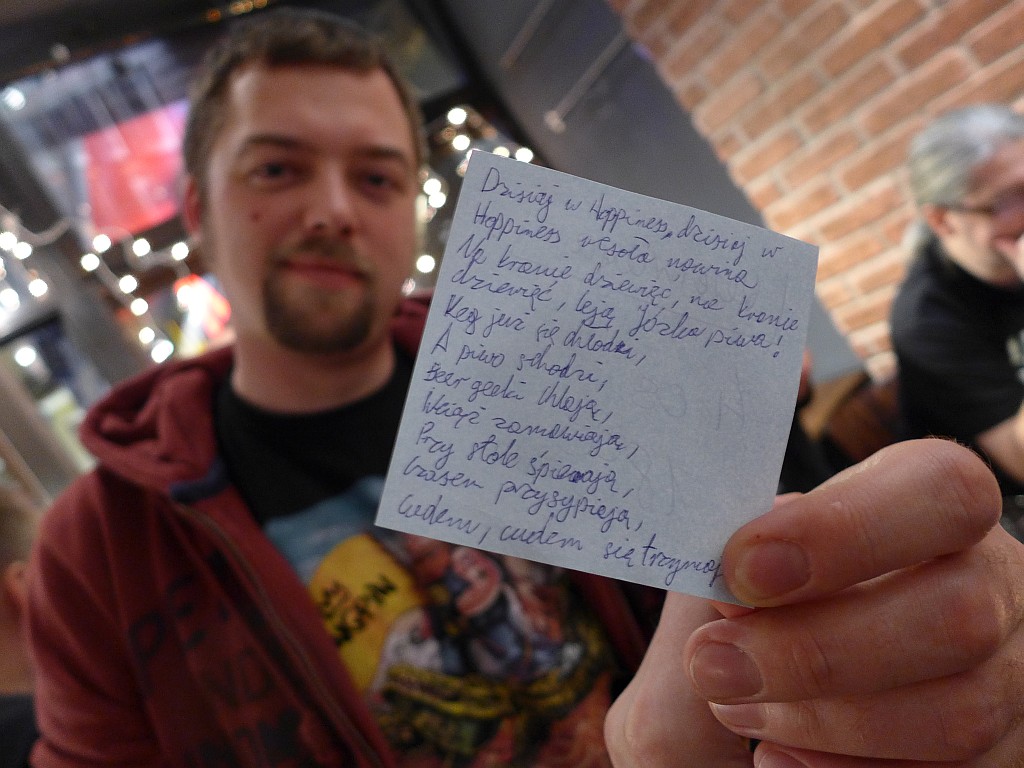 Dzisiaj w Hoppiness, dzisiaj w
Hoppiness wesoła nowina
Na kranie dziewięć, na kranie
dziewięć, leją Józka piwa!
Keg już się chłodzi,
A piwo schodzi,
Beer geeki chłoją,
Wciąż zamawiają,
Przy stole śpiewają,
Czasem przysypiają,
Cudem, cudem się trzymają